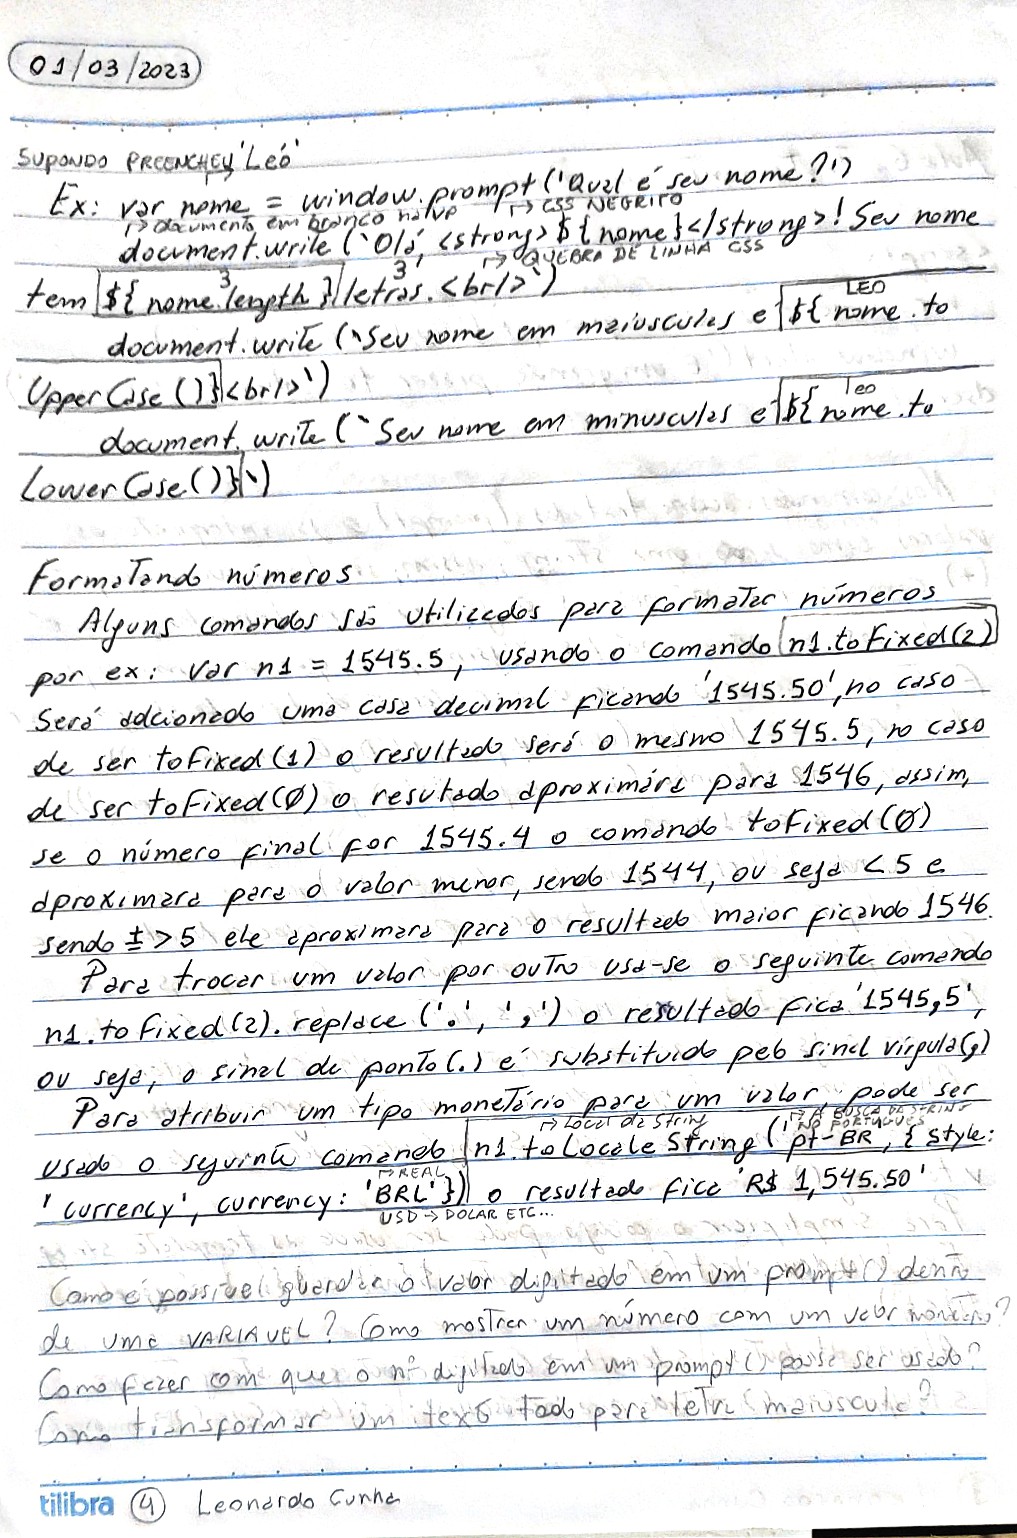 01/03/2023
SUPONDO PREENCHEU 'Leó'
Ex: var nome = window.prompt ('Qual é seu nome?')
↳ documento em branco na VP ↳ CSS NEGRITO
document.write (`Olá, <strong>${nome}</strong>! Seu nome
3 3 ↳ QUEBRA DE LINHA CSS
tem ${nome.length} letras.<br/>`)
LEO
document.write (`Seu nome em maiusculas e ${nome.to
UpperCase()}<br/>`)
leo
document.write (`Seu nome em minusculas e ${nome.to
LowerCase()}`)
Formatando números
Alguns comandos são utilizados para formatar números
por ex: var n1 = 1545.5, usando o comando n1.toFixed(2)
Será adcionado uma casa decimal ficando '1545.50', no caso
de ser toFixed(1) o resultado será o mesmo 1545.5, no caso
de ser toFixed(0) o resutado aproximára para 1546, assim,
se o número final for 1545.4 o comando toFixed(0)
aproximara para o valor menor, sendo 1544, ou seja <5 e
sendo ± >5 ele aproximara para o resultado maior ficando 1546.
Para trocar um valor por outro usa-se o seguinte comando
n1.toFixed(2).replace ('.', ',') o resultado fica '1545,5',
ou seja, o sinal de ponto(.) é substituido pelo sinal vírgula(,)
Para atribuir um tipo monetário para um valor, pode ser
↳ Local da String ↳ A BUSCA DA STRING NO PORTUGUÊS
usado o seguinte comando n1.toLocaleString ('pt-BR, { style:
↳ REAL
'currency', currency: 'BRL'}) o resultado fica 'R$ 1,545.50'
USD → DOLAR ETC...
Como é possível guardar o valor digitado em um prompt() dentro
de uma VARIAVEL? Como mostrar um número com um valor monetário?
Como fazer com que o nº digitado em um prompt() possa ser usado?
Como transformar um texto todo para letra maiuscula?
tilibra 4 Leonardo Cunha